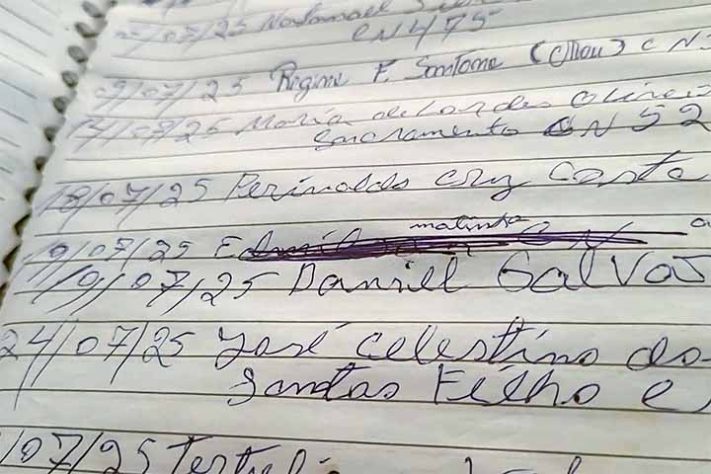 /07/25 Natanael
CN475
09/07/25 Regina F. Santana (Chou) CN
14/07/25 Maria de Lordes Olivei
Sacramento CN 52
18/07/25 Perinaldo Cruz Costa
19/07/25 matinha CN
19/07/25 Daniell Galvao
24/07/25 José Celestino dos
Santos Filho e
/07/25